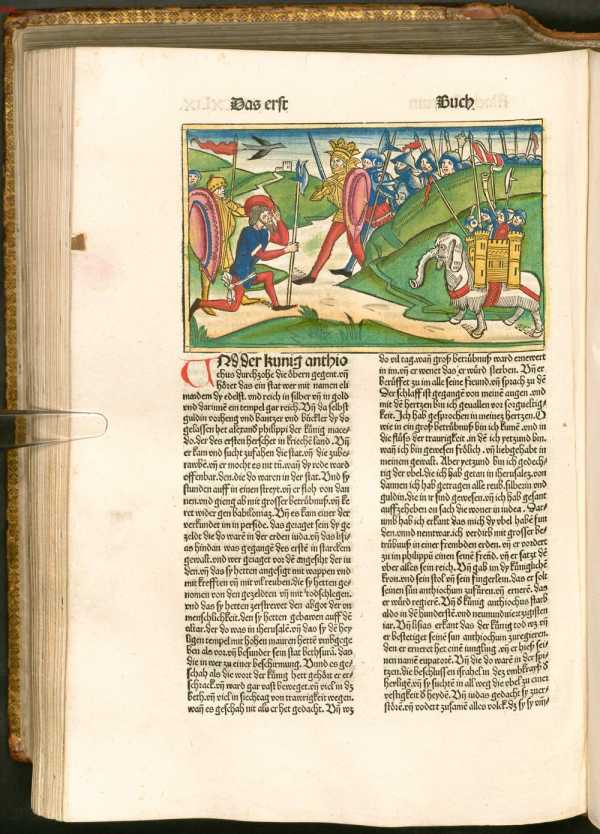 Das erst
Buch
UNd der kunig anthio
chus durchzohe die öbern gegent. vñ
höret das ein stat wer mit namen eli
maidem dy edelst. vnd reich in silber vñ in gold
vnd darinne ein tempel gar reich. Vñ da selbst
guldin vorheng vnd bantzer vnd bückler dy do
gelassen het alexand philippi der künig mace
do. der des ersten herschet in kriechē land. Vñ
er kam vnd sucht zufahen die stat. vñ die zube-
rawbē. vñ er mocht es nit tů. wañ dy rede ward
offenbar. den. die do waren in der stat. Vnd sy
stunden auff in einen streyt. vñ er floh von dan
nen. vnd gieng ab mit grosser betrübnuß. vñ ke
ret wider gen babiloniaz. Vñ es kam einer der
verkundet im in perside. das geiaget sein dy ge
zeldt die do warē in der erden iuda. vñ das lisi-
as hindan was gegangē des erstē in starckem
gewalt. vnd wer geiaget vor dē angesiht der iu
den. vñ das sy hetten angesigt mit wappen vnd
mit krefften vñ mit vil reuben. die sy hetten ge-
nomen von den gezeldten vñ mit todschlegen.
vnd das sy hetten zerstrewet den abgot der vn
menschlicheit. den sy hetten gebawen auff dē
altar. der do was in iherusalē. vñ das sy dē hey
ligen tempel mit hohen mauren hettē vmbgege
ben als vor. vñ besunder sein stat bethsurā. das
die in wer zu einer beschirmung. Vund es ge-
schah als die wort der künig hett gehört er er-
schrack. vñ ward gar vast beweget. vñ viel in dz
beth. vñ viel in siechtag von traurigkeit wegen.
wañ es geschah nit als er het gedacht. Vñ wz
do vil tag. wañ groß betrübnuß ward ernewert
in im. vñ er wenet das er würd sterben. Vñ er
berüffet zu im alle seine freund. vñ sprach zu dē
Der schlaff ist gegangē von meinē augen. vnd
mit dē hertzen bin ich geuallen vor sorgueltig-
keit. Ich hab gesprochen in meinez hertzen. O
wie in ein groß betrübnuß bin ich kumē. vnd in
die flüß der traurigkeit. in dē ich yetzund bin.
wañ ich bin gewesen frölich. vñ liebgehabt in
meinem gewalt. Aber yetzund bin ich gedech-
tig der übel. die ich hab getan in iherusalez. von
dannen ich hab getragen alle reub. silberin vnd
guldin. die in ir sind gewesen. vñ ich hab gesant
auffzeheben on sach die woner in iudea. Dar-
umb hab ich erkant das mich dy übel habē fun
den. vnnd nemtwar. ich verdirb mit grosser be-
trübnuß in einer frembden erden. vñ er vordert
zu im philippū einen seinē freūd. vñ er satzt dē
über alles sein reich. Vñ gab im dy künigliche
kron. vnd sein stol vñ sein fingerlein. das er solt
seinen sun anthiochum zufüren. vñ ernerē. das
er würd regierē. Vñ ð künig anthiochus starb
aldo in dē hunderstē. vnd neunundviertzigisten
iar. Vñ lisias erkant das der künig tod wz. vñ
er bestetiget seinē sun anthiochum zuregieren.
den er erneret het einē iungling. vñ er hieß sei-
nen namē eupatorē. Vñ die do warē in der spi-
tzen. die beschlussen israhel in dez vmbkrayß ð
heyligē. vñ sy suchtē in all weg die übel zu einer
vestigkeit ð heydē. Vñ iudas gedacht sy zuer-
störē. vñ vodert zusamē alles volck. dz sy sy vm-